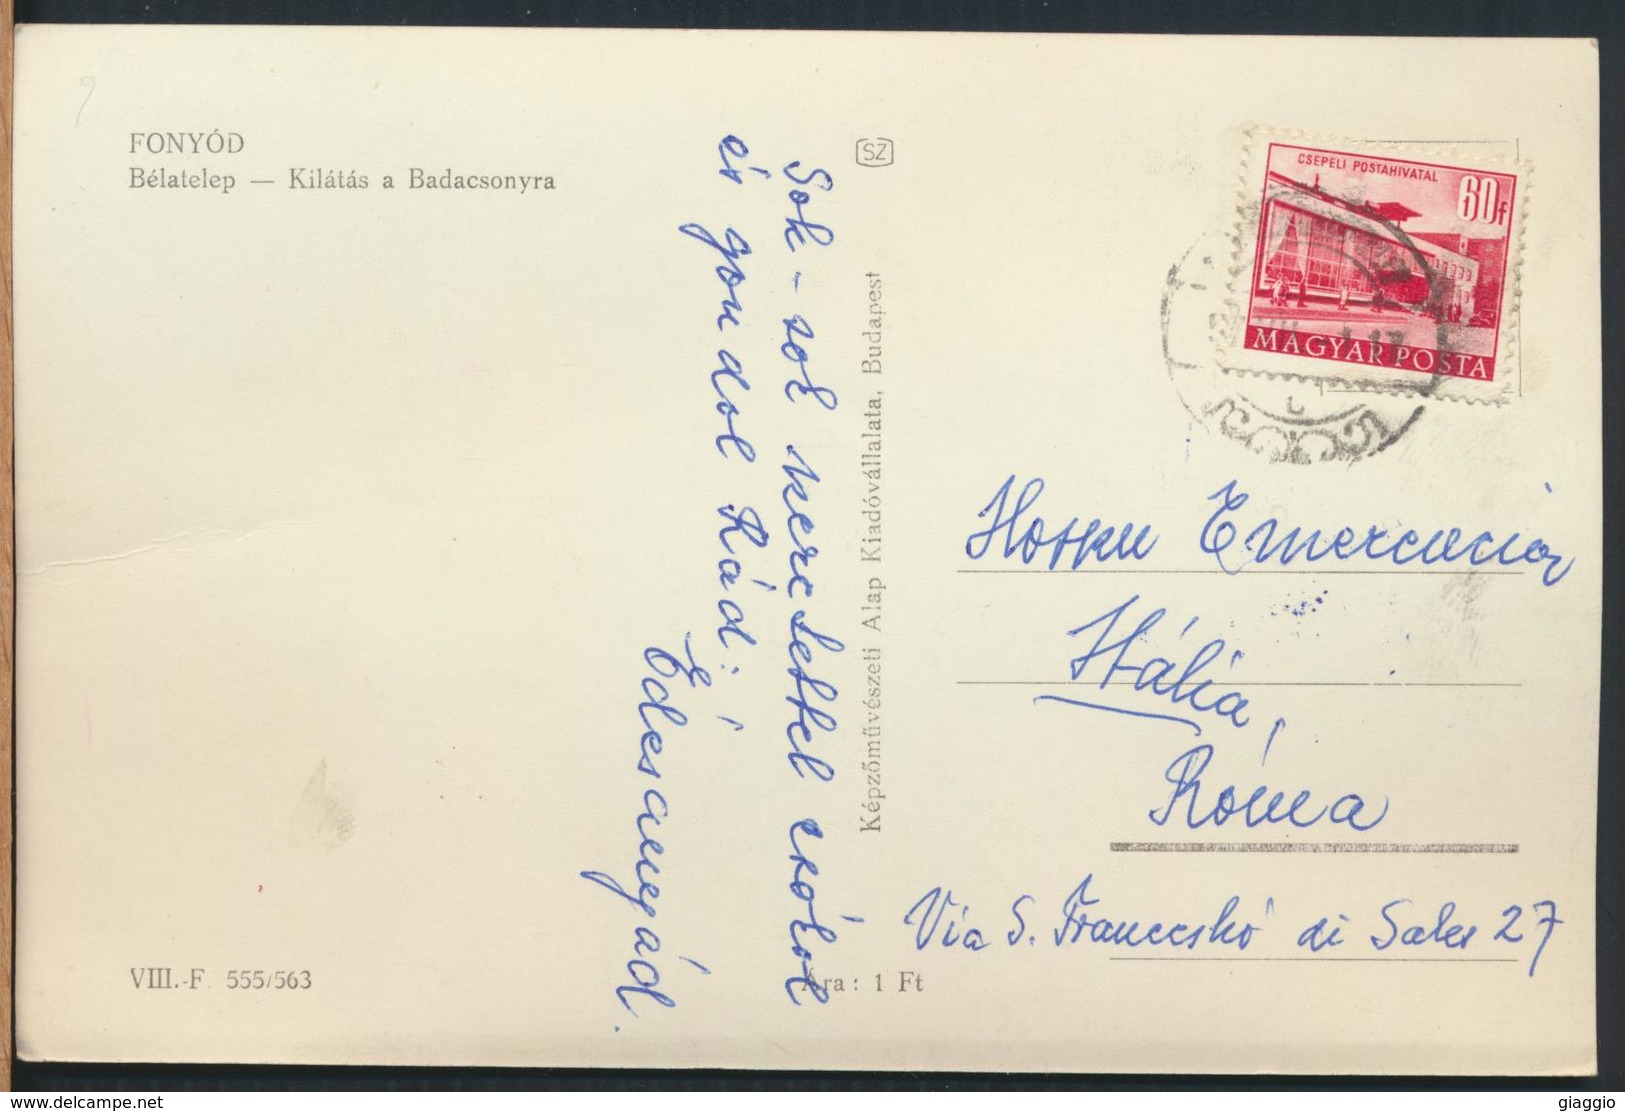 FONYÓD
Bélatelep — Kilátás a Badacsonyra
SZ
CSEPELI POSTAHIVATAL
60f
MAGYAR POSTA
Sok-sok szeretettel csókol
és gondol Rád:
Édesanyád.
Képzőművészeti Alap Kiadóvállalata, Budapest
Itália,
Róma
Via S. Franceskó di Sales 27
VIII.-F. 555/563
Ára: 1 Ft
www.delcampe.net
giaggio